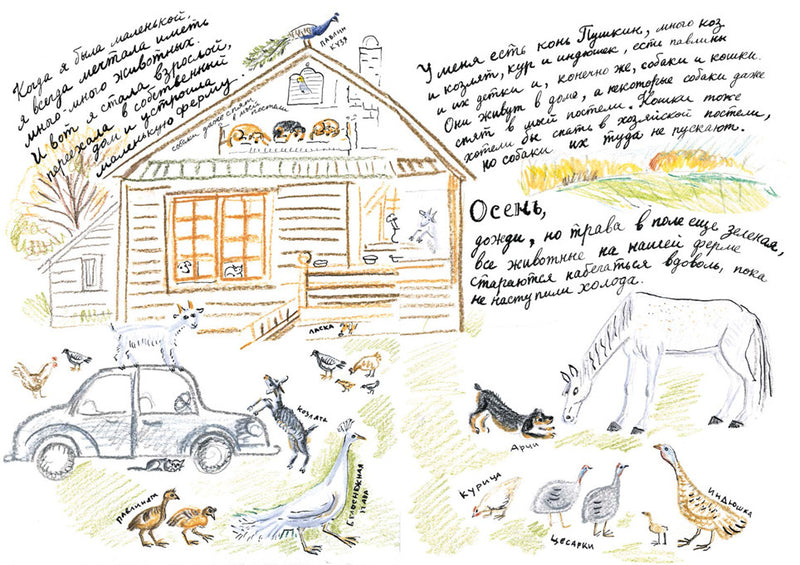 Когда я была маленькой,
я всегда мечтала иметь
много-много животных.
И вот я стала взрослой,
переехала в собственный
дом и устроила
маленькую ферму.
ПАВЛИН
КУЗЯ
собаки даже спят
в моей
постели
У меня есть конь Пушкин, много коз
и козлят, кур и индюшек, есть павлины
и их детки и, конечно же, собаки и кошки.
Они живут в доме, а некоторые собаки даже
спят в моей постели. Кошки тоже
хотели бы спать в хозяйской постели,
но собаки их туда не пускают.
Осень,
дожди, но трава в поле еще зеленая,
все животные на нашей ферме
стараются набегаться вдоволь, пока
не наступили холода.
ЛАСКА
КОЗЛЯТА
ПАВЛИНЯТА
БЕЛОСНЕЖНАЯ
ПАВА
АРЧИ
КУРИЦА
ЦЕСАРКИ
ИНДЮШКА